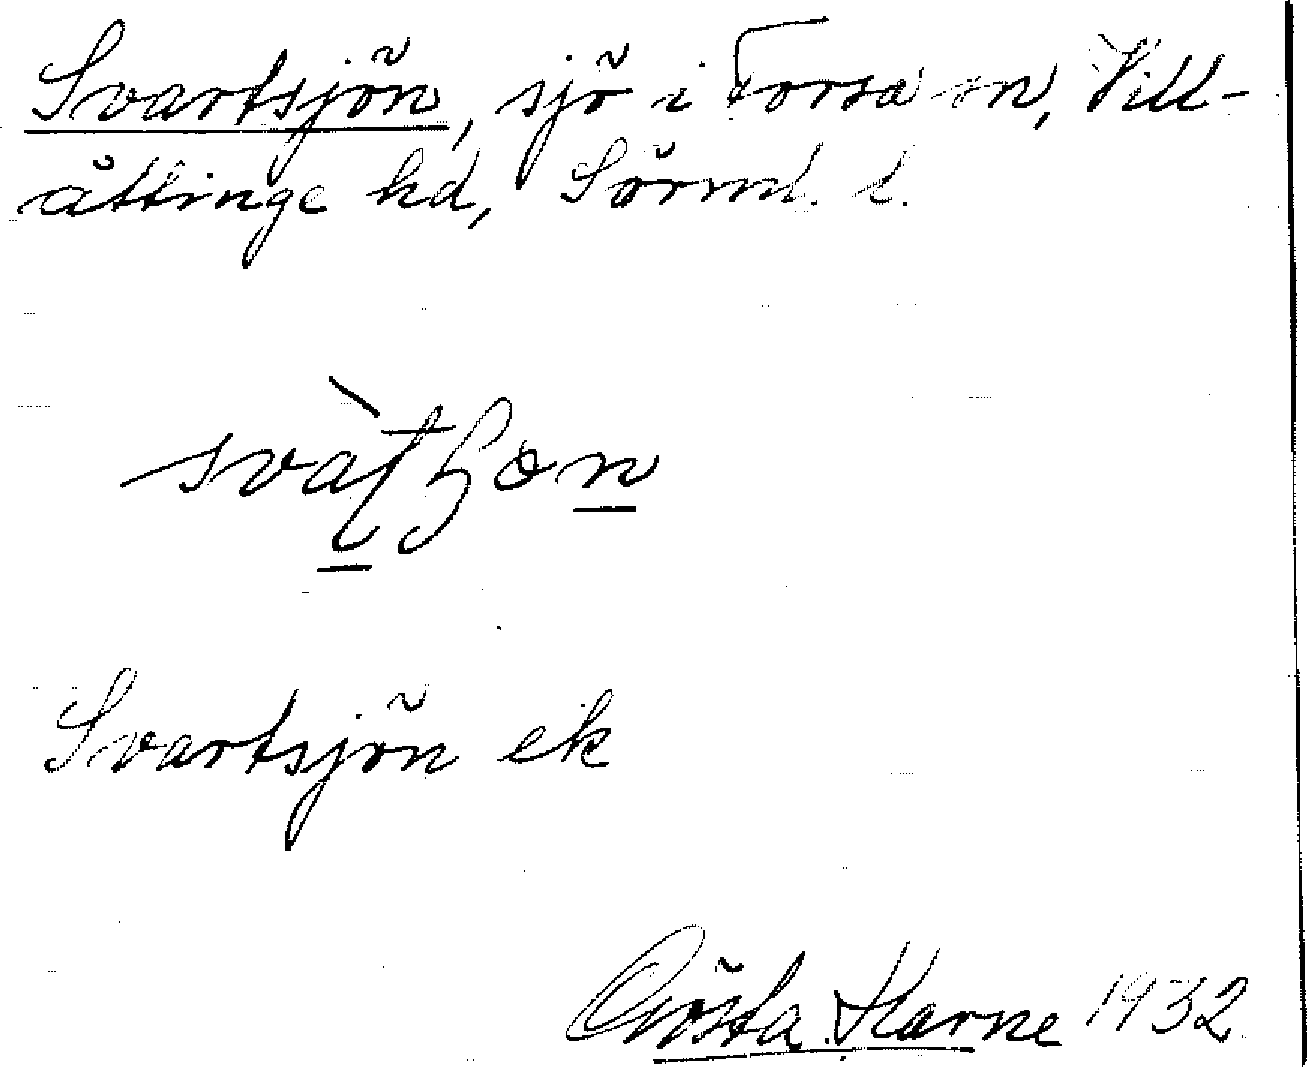 Svartsjön, sjö i Forsa sn, Vill-
åttinge hd, Sörml. l.
Svartsjön ek
Gösta Karne 1932